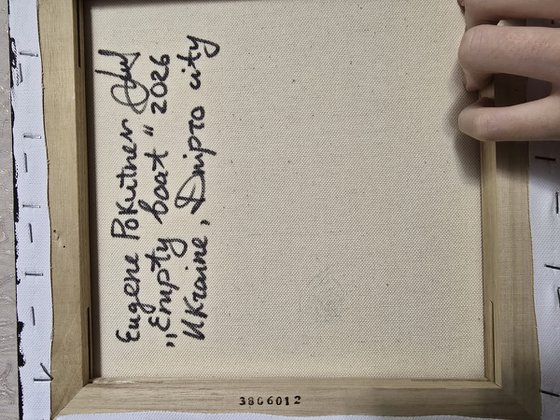 Eugene Pokutnev
„Empty boat" 2026
Ukraine, Dnipro city
3806012